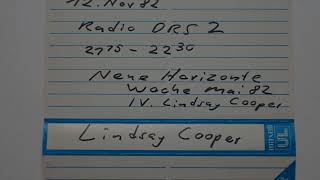 12. Nov 82
Radio DRS 2
21 15 - 22 30
Neue Horizonte
Woche Mai 82
IV. Lindsay Cooper
Lindsay Cooper
maxell
UL